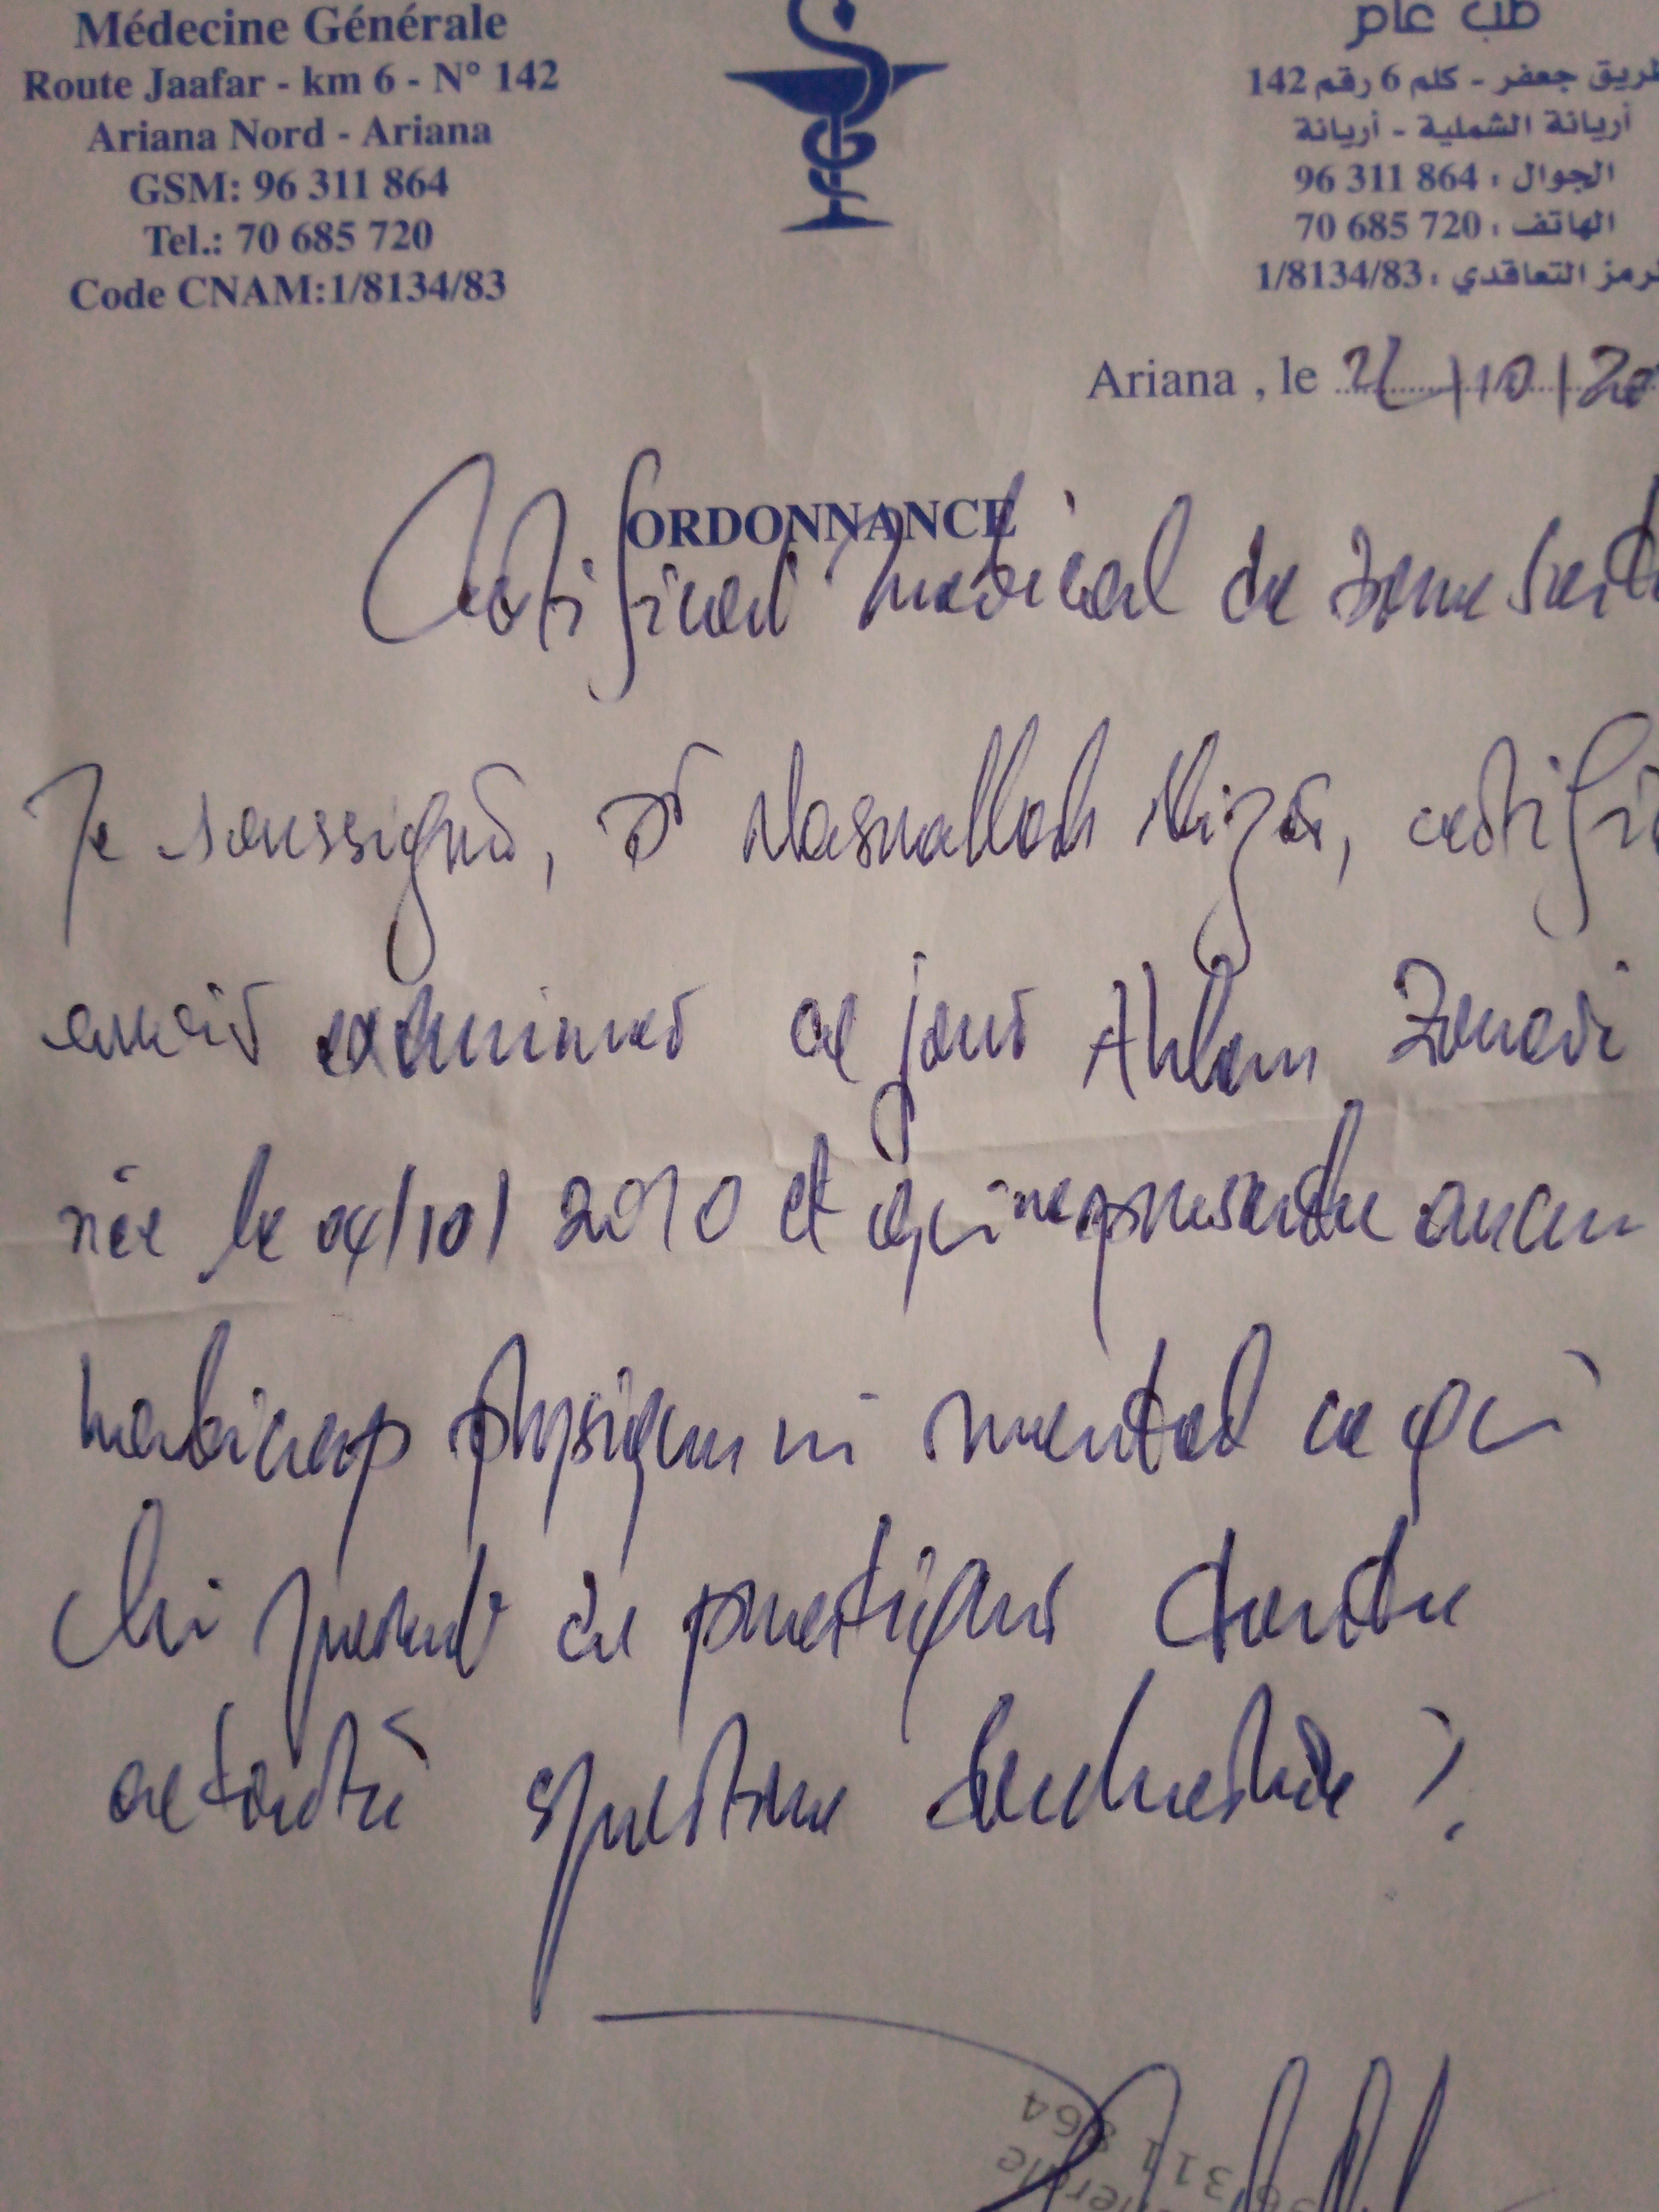 Médecine Générale
Route Jaafar - km 6 - N° 142
Ariana Nord - Ariana
GSM: 96 311 864
Tel.: 70 685 720
Code CNAM:1/8134/83
طب عام
طريق جعفر - كلم 6 رقم 142
أريانة الشملية - أريانة
الجوال : 96 311 864
الهاتف : 70 685 720
الرمز التعاقدي : 1/8134/83
Ariana , le 21/10/20
ORDONNANCE
Certificat médical de bonne santé
Je soussigné, Dr Nasrallah Nizar, certifie
avoir examiner ce jour Ahlem
née le 04/10/2010 et qui ne présente aucun
handicap physique ni mental ce qui
lui permet de pratiquer
activité sportive
311 864